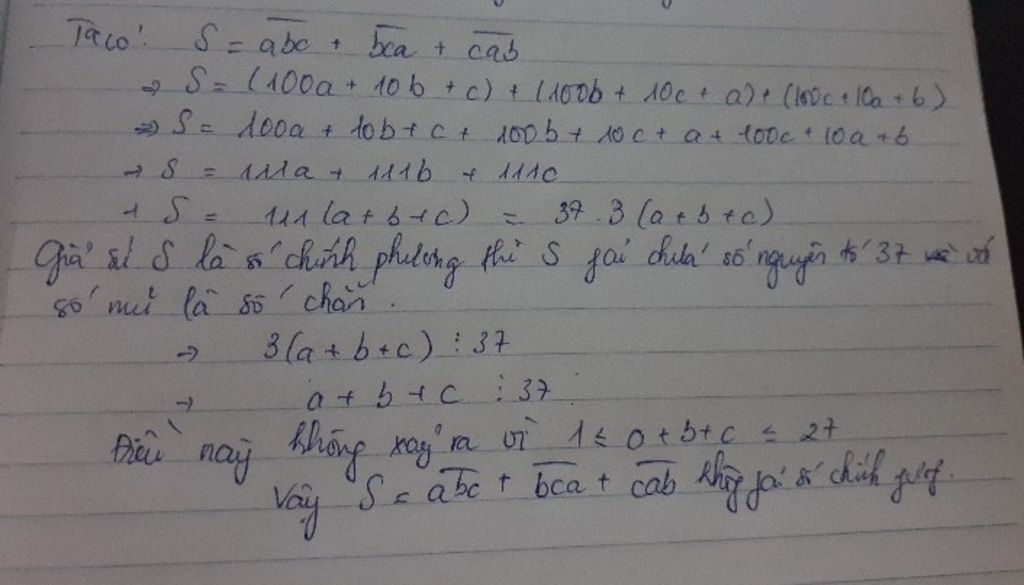 Ta có: S = \overline{abc} + \overline{bca} + \overline{cab}
→ S = (100a + 10b + c) + (100b + 10c + a) + (100c + 10a + b)
⇒ S = 100a + 10b + c + 100b + 10c + a + 100c + 10a + b
→ S = 111a + 111b + 111c
→ S = 111(a + b + c) = 37.3(a + b + c)
Giả sử S là số chính phương thì S fải chứa số nguyên tố 37 với
số mũ là số chẵn.
→ 3(a + b + c) ⋮ 37
→ a + b + c ⋮ 37
Điều này không xảy ra vì 1 ≤ a + b + c ≤ 27
Vậy S = \overline{abc} + \overline{bca} + \overline{cab} không fải số chính